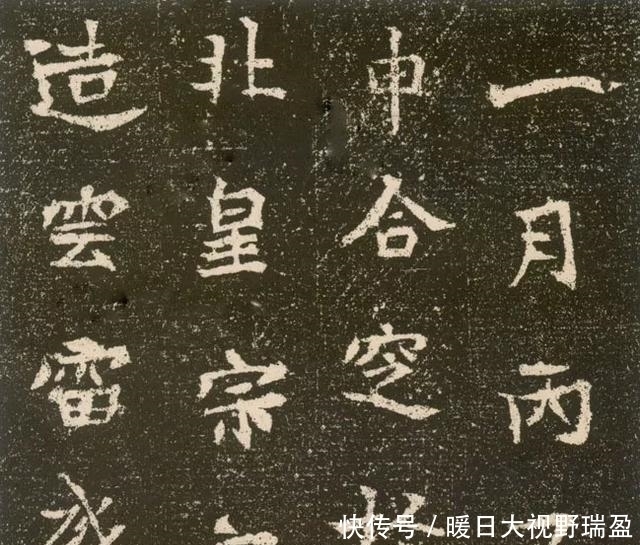 一月丙
申合窆
北皇宗
造雲雷
快传号／暖日大视野瑞盈